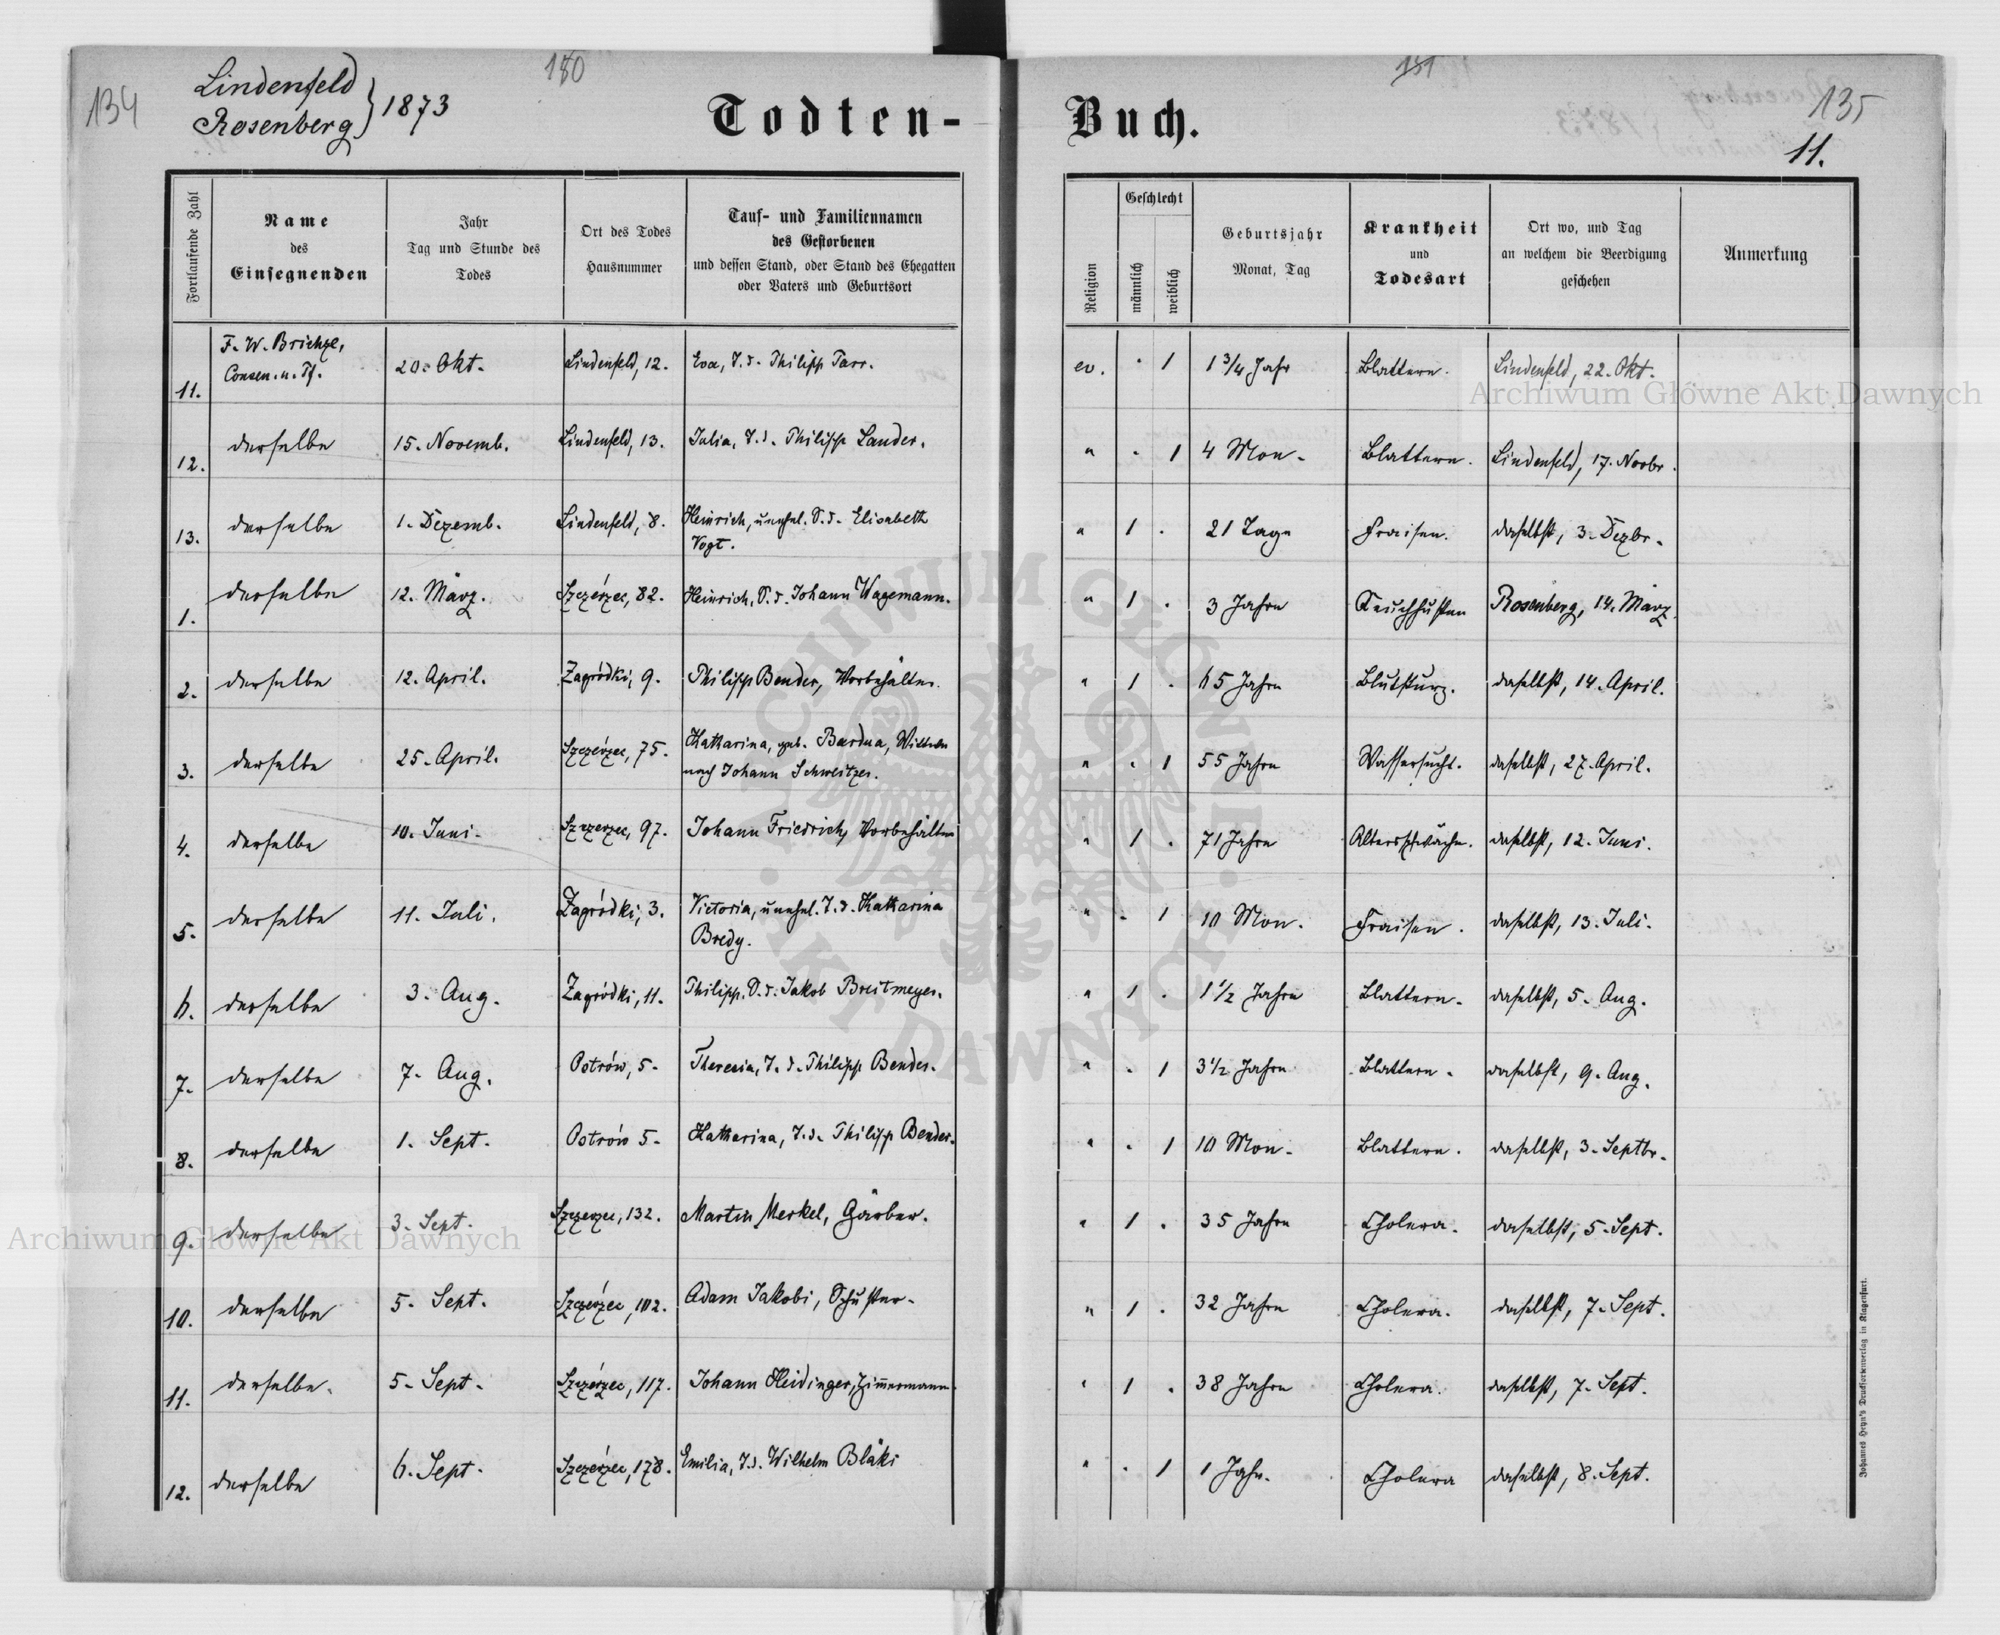 134
Lindenfeld
Rosenberg } 1873
180
Todten-
Buch.
181
135
11.
Fortlaufende Zahl
Name
des
Einsegnenden
Jahr
Tag und Stunde des
Todes
Ort des Todes
Hausnummer
Tauf- und Familiennamen
des Gestorbenen
und dessen Stand, oder Stand des Ehegatten
oder Vaters und Geburtsort
Religion
Geschlecht
männlich
weiblich
Geburtsjahr
Monat, Tag
Krankheit
und
Todesart
Ort wo, und Tag
an welchem die Beerdigung
geschehen
Anmerkung
11. F. W. Brichze, 20. Okt. Lindenfeld, 12. Eva, T. d. Philipp Tarr. ev. . 1 1 3/4 Jahr Blattern. Lindenfeld, 22. Okt.
Consen. u. Pf.
12. derselbe 15. Novemb. Lindenfeld, 13. Julia, T. d. Philipp Lander. " . 1 4 Mon. Blattern. Lindenfeld, 17. Novbr.
13. derselbe 1. Dezemb. Lindenfeld, 8. Heinrich, unehel. S. d. Elisabeth " 1 . 21 Tage Fraisen. daselbst, 3. Dezbr.
Vogt.
1. derselbe 12. März. Szczérzec, 82. Heinrich, S. d. Johann Wagemann. " 1 . 3 Jahre Keuchhusten Rosenberg, 14. März
2. derselbe 12. April. Zagródki, 9. Philipp Bender, Vorbehälter. " 1 . 65 Jahre Blutsturz. daselbst, 14. April.
3. derselbe 25. April. Szczérzec, 75. Katharina, geb. Bardua, Wittwe " . 1 55 Jahre Wassersucht. daselbst, 27. April.
nach Johann Schweitzer.
4. derselbe 10. Juni. Szczerzec, 97. Johann Friedrich, Vorbehälter " 1 . 71 Jahre Altersschwäche. daselbst, 12. Juni.
5. derselbe 11. Juli. Zagródki, 3. Victoria, unehel. T. d. Katharina " . 1 10 Mon. Fraisen. daselbst, 13. Juli.
Bredy.
6. derselbe 3. Aug. Zagródki, 11. Philipp, S. d. Jakob Breitmeyer. " 1 . 1 1/2 Jahre Blattern. daselbst, 5. Aug.
7. derselbe 7. Aug. Ostrów, 5. Theresia, T. d. Philipp Bender. " . 1 3 1/2 Jahre Blattern. daselbst, 9. Aug.
8. derselbe 1. Sept. Ostrów 5. Katharina, T. d. Philipp Bender. " . 1 10 Mon. Blattern. daselbst, 3. Septbr.
9. derselbe 3. Sept. Szczerzec, 132. Martin Merkel, Gärber. " 1 . 35 Jahre Cholera. daselbst, 5. Sept.
10. derselbe 5. Sept. Szczérzec, 102. Adam Jakobi, Schuster. " 1 . 32 Jahre Cholera. daselbst, 7. Sept.
11. derselbe. 5. Sept. Szczérzec, 117. Johann Heidinger, Zim̅ermann. " 1 . 38 Jahre Cholera. daselbst, 7. Sept.
12. derselbe 6. Sept. Szczérzec, 178. Emilia, T. d. Wilhelm Bläki " . 1 1 Jahr. Cholera daselbst, 8. Sept.
Johannes Heyn's Drucksortenverlag in Klagenfurt.
Archiwum Główne Akt Dawnych
Archiwum Główne Akt Dawnych
ARCHIWUM GŁÓWNE · AKT DAWNYCH ·